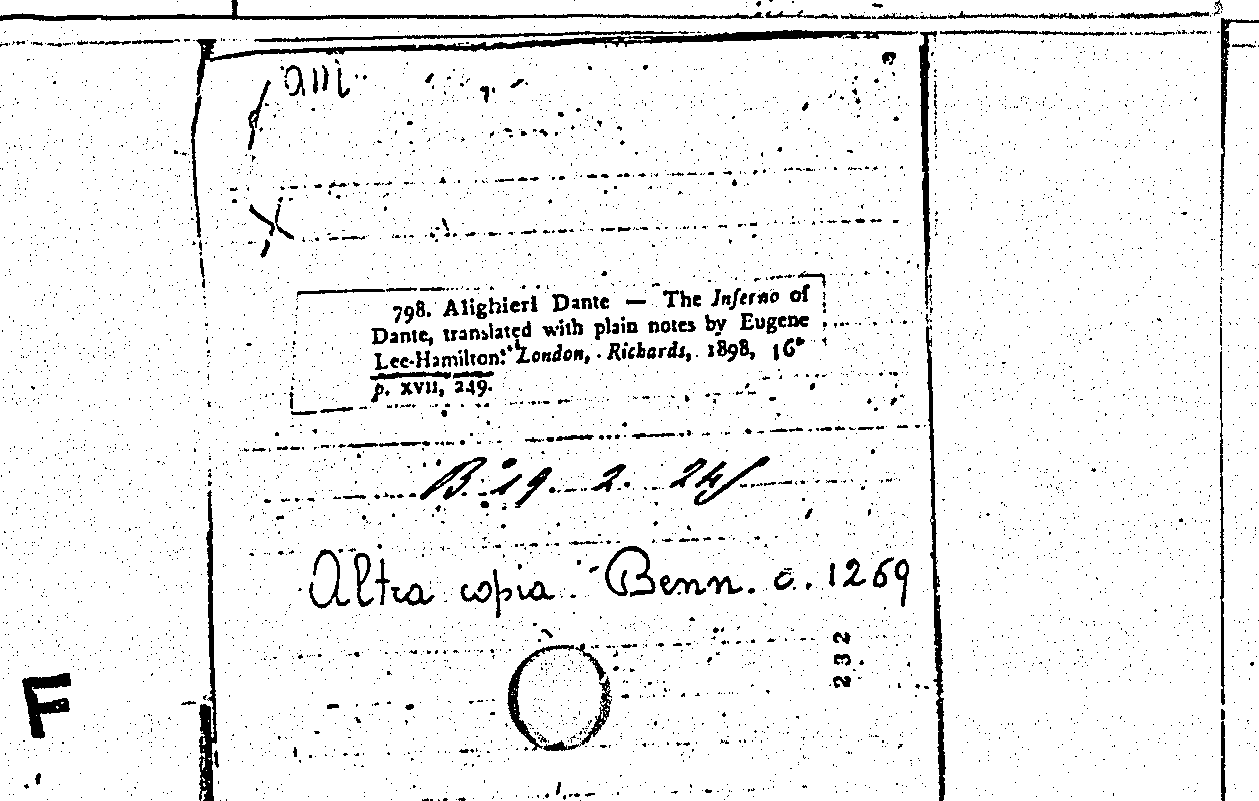 798. Alighieri Dante — The Inferno of
Dante, translated with plain notes by Eugene
Lee-Hamilton: London, Richards, 1898, 16°
p. XVII, 249.
B. 19. 2. 24
Altra copia. Benn. c. 1269
232
F